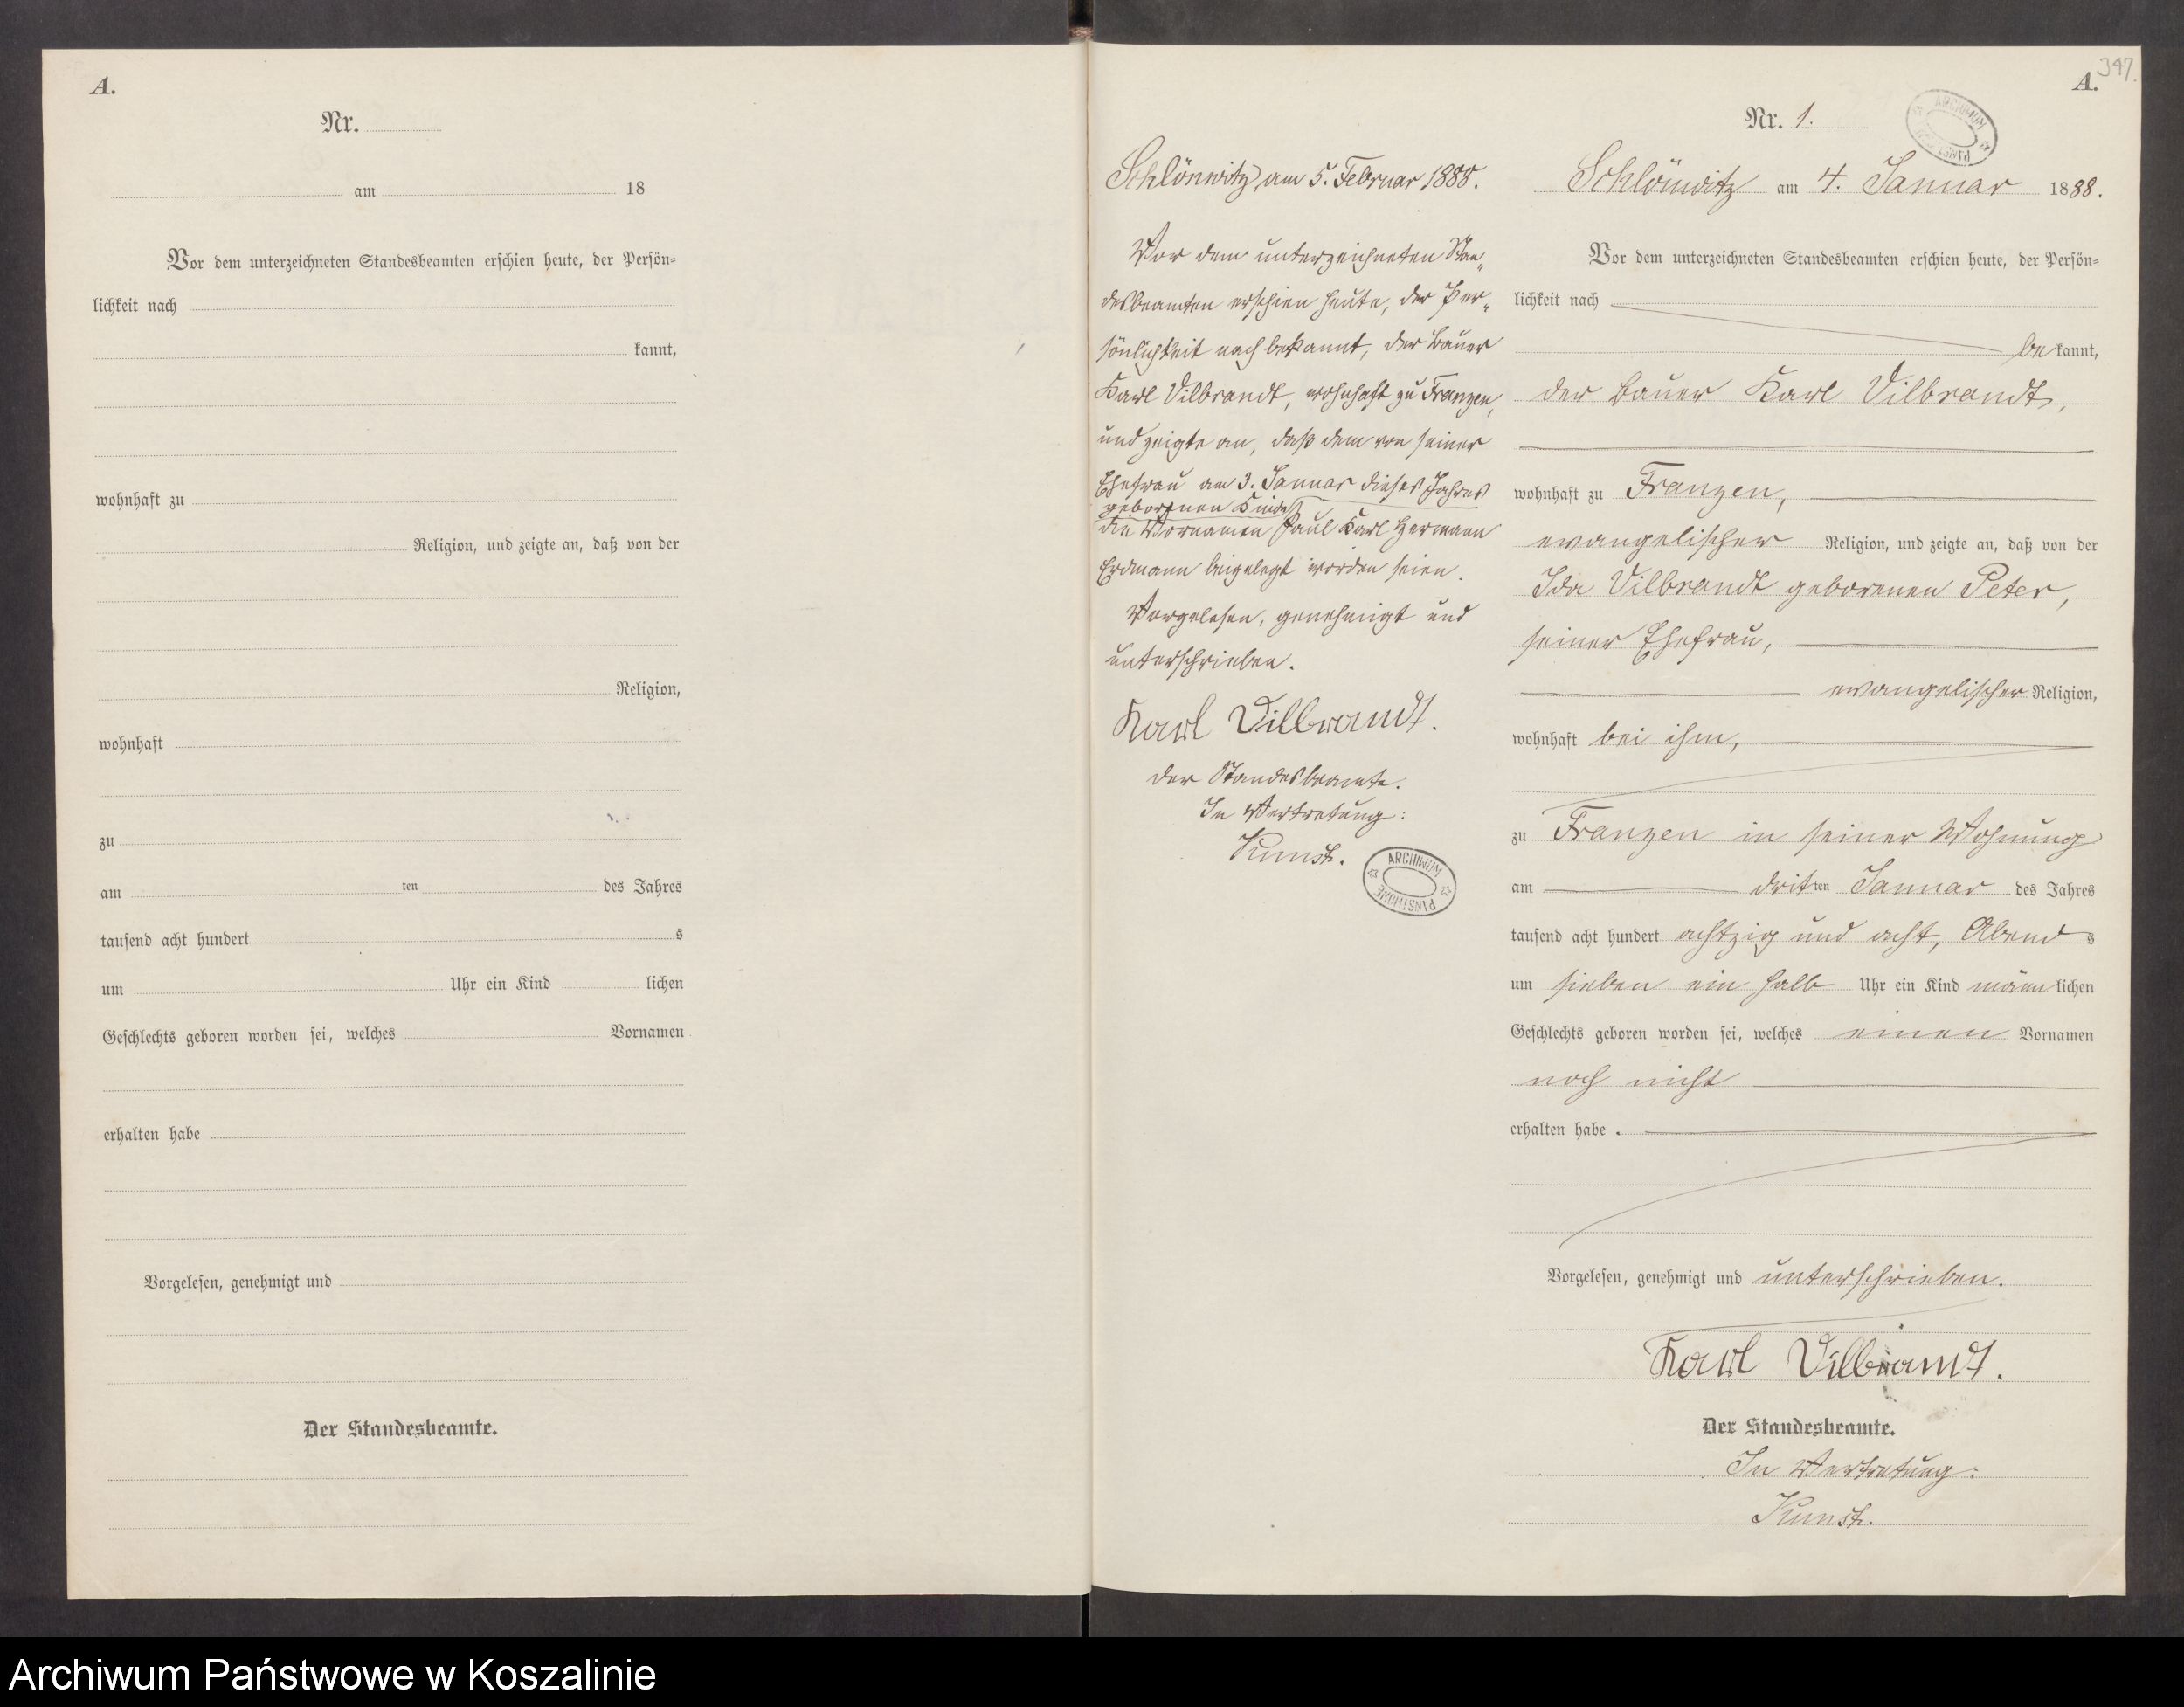 A.
Nr.
am 18
Vor dem unterzeichneten Standesbeamten erschien heute, der Persön=
lichkeit nach
kannt,
wohnhaft zu
Religion, und zeigte an, daß von der
Religion,
wohnhaft
zu
am ten des Jahres
tausend acht hundert s
um Uhr ein Kind lichen
Geschlechts geboren worden sei, welches Vornamen
erhalten habe
Vorgelesen, genehmigt und
Der Standesbeamte.
Schlönwitz, am 5. Februar 1888.
Vor dem unterzeichneten Stan„
desbeamten erschien heute, der Per„
sönlichkeit nach bekannt, der Bauer
Karl Vilbrandt, wohnhaft zu Franzen,
und zeigte an, daß dem von seiner
Ehefrau am 3. Januar dieses Jahres
geborenen Kinde
die Vornamen Paul Karl Hermann
Erdmann beigelegt worden seien.
Vorgelesen, genehmigt und
unterschrieben.
Karl Vilbrandt.
Der Standesbeamte.
In Vertretung:
Kunst.
ARCHIWUM
PAŃSTWOWE
347.
A.
Nr. 1.
ARCHIWUM
PAŃSTWOWE
Schlönwitz am 4. Januar 1888.
Vor dem unterzeichneten Standesbeamten erschien heute, der Persön=
lichkeit nach
be kannt,
der Bauer Karl Vilbrandt,
wohnhaft zu Franzen,
evangelischer Religion, und zeigte an, daß von der
Ida Vilbrandt geborenen Peter,
seiner Ehefrau,
evangelischer Religion,
wohnhaft bei ihm,
zu Franzen in seiner Wohnung
am dritten Januar des Jahres
tausend acht hundert achtzig und acht, Abends
um sieben ein halb Uhr ein Kind männlichen
Geschlechts geboren worden sei, welches einen Vornamen
noch nicht
erhalten habe.
Vorgelesen, genehmigt und unterschrieben.
Karl Vilbrandt.
Der Standesbeamte.
In Vertretung:
Kunst.
Archiwum Państwowe w Koszalinie